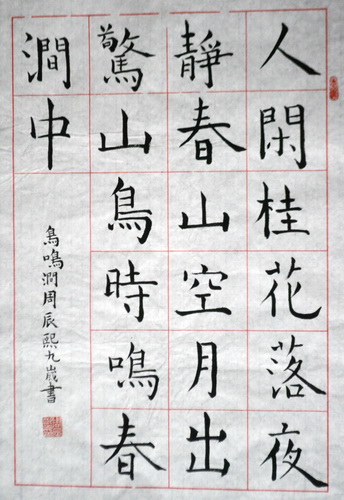 人閑桂花落夜
靜春山空月出
驚山鳥時鳴春
澗中
鳥鳴澗周辰熙九歲書